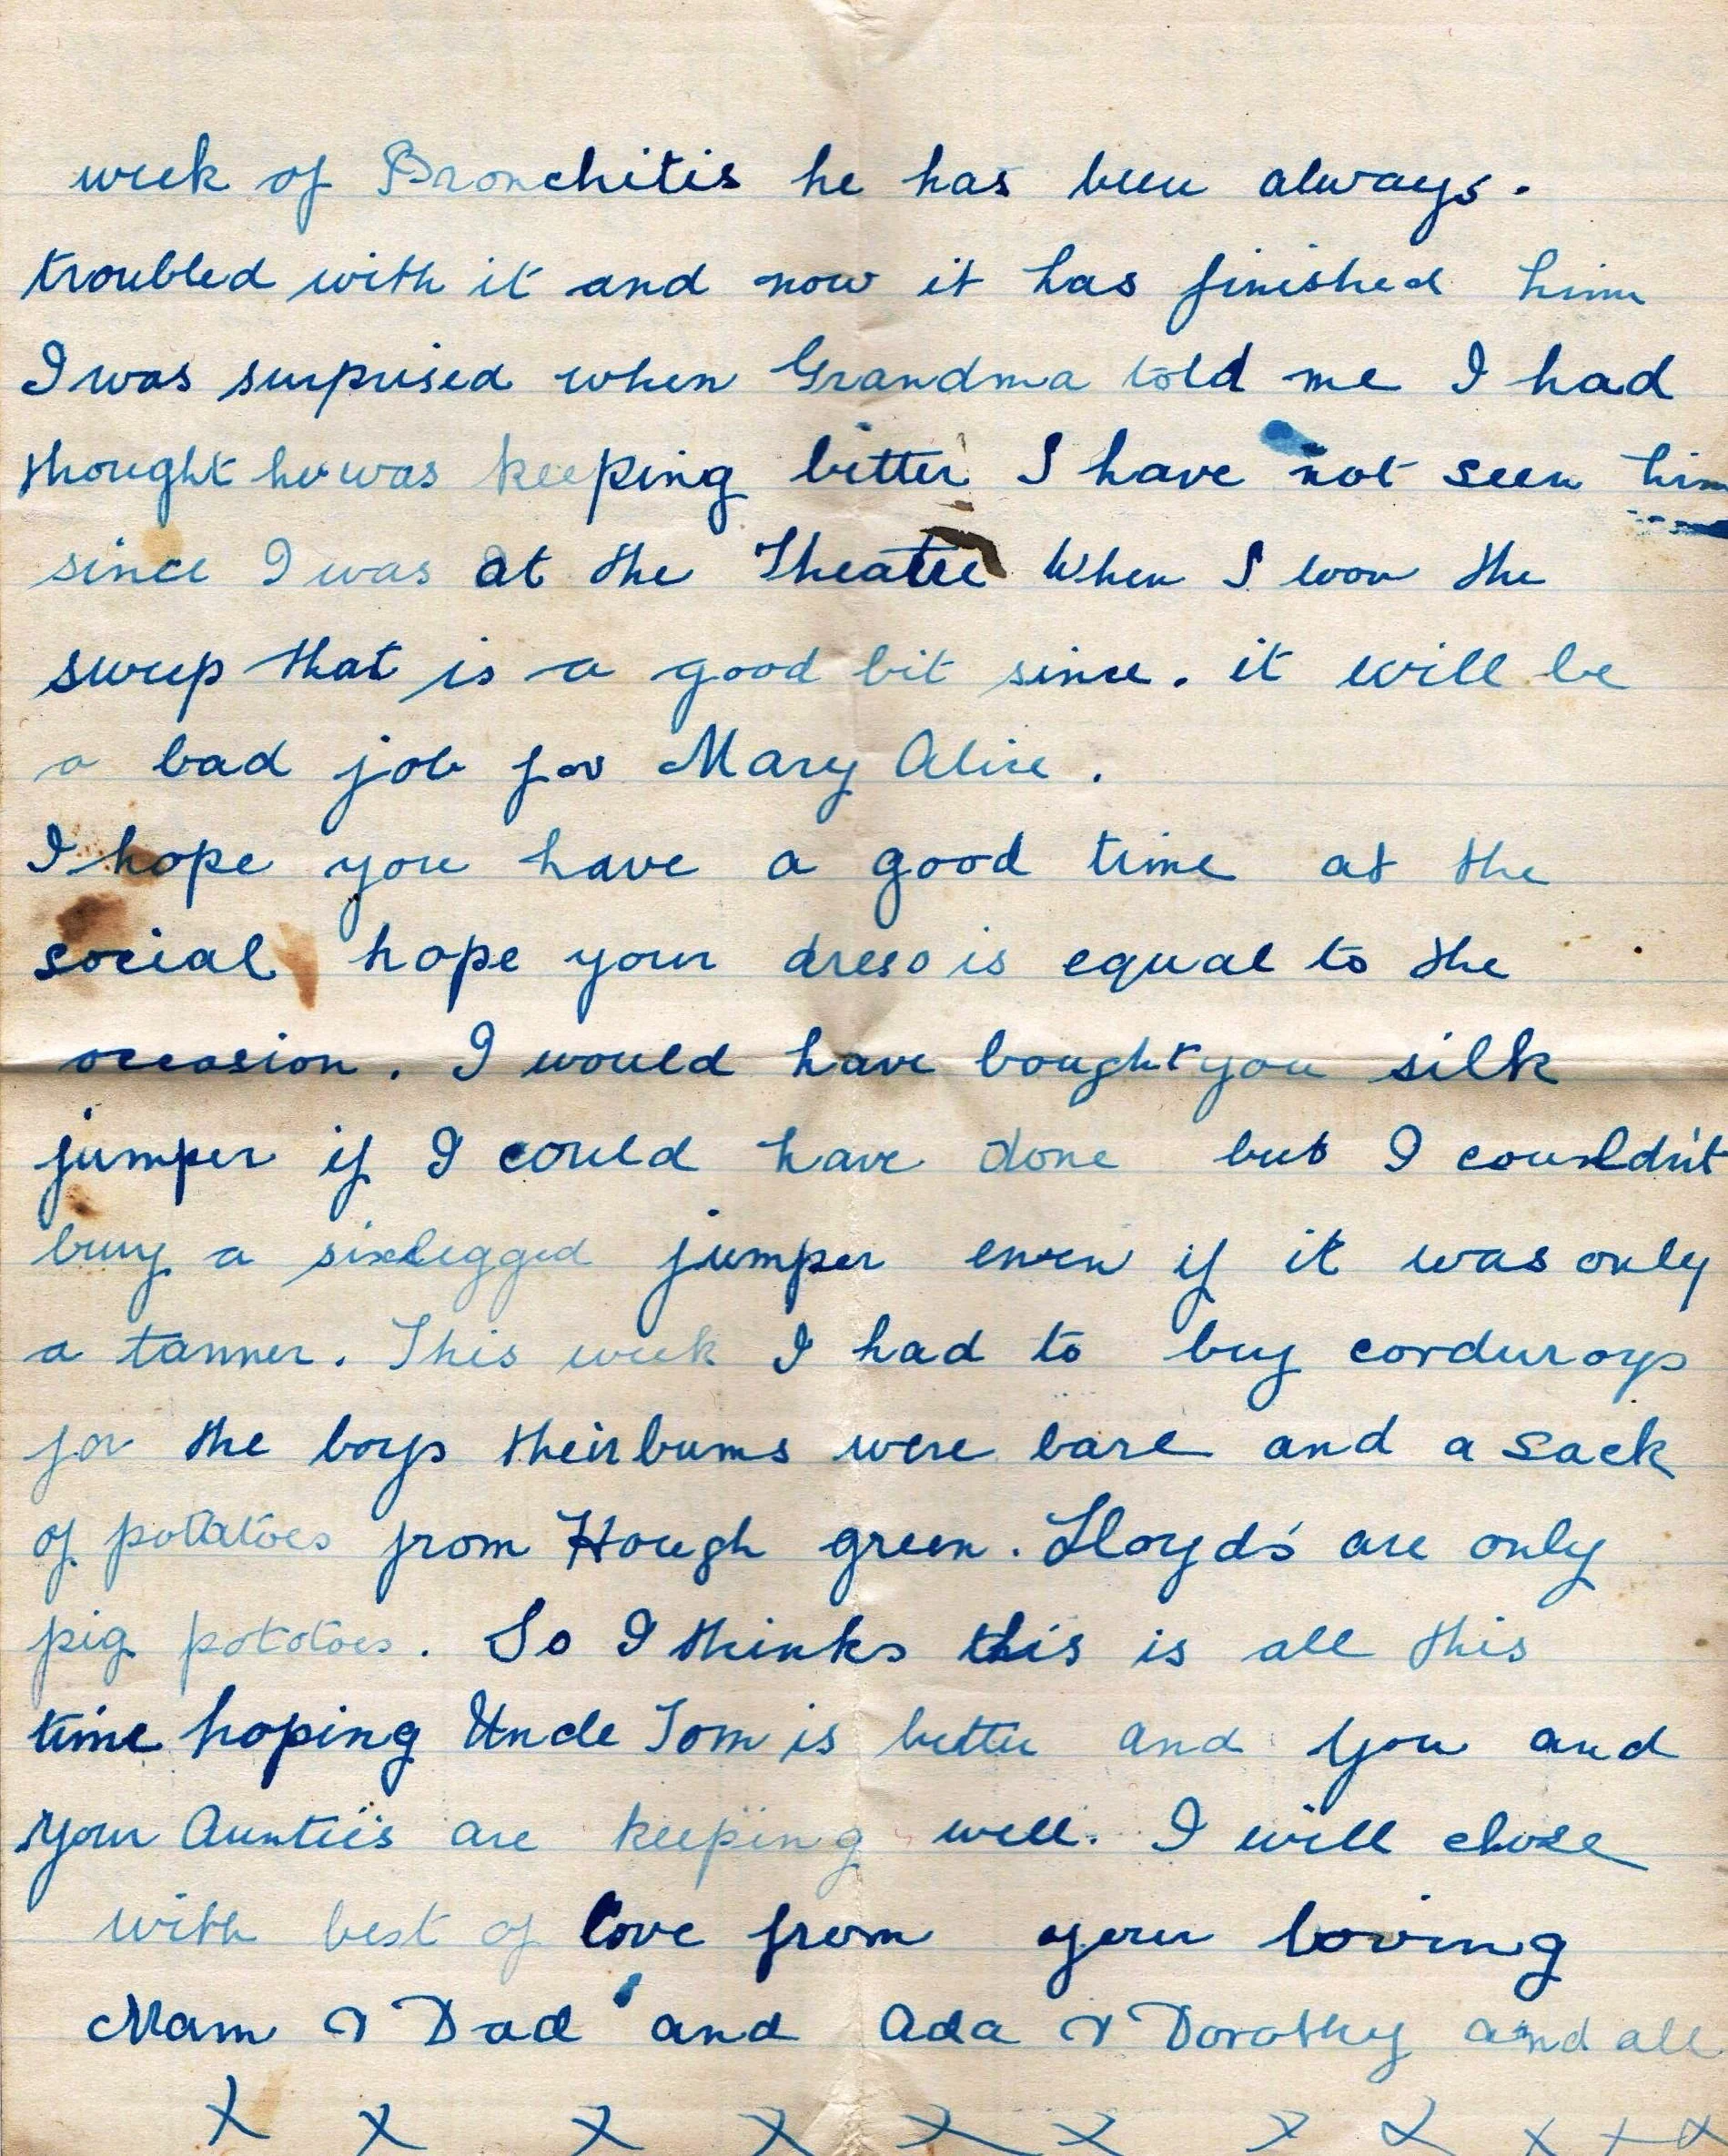 week of Bronchitis he has been always.
troubled with it and now it has finished him
I was surprised when Grandma told me I had
thought he was keeping better I have not seen him
since I was at the Theatre When I won the
sweep that is a good bit since. it will be
a bad job for Mary Alice.
I hope you have a good time at the
social hope your dress is equal to the
occasion. I would have bought you silk
jumper if I could have done but I couldn't
buy a sixlegged jumper even if it was only
a tanner. This week I had to buy corduroys
for the boys their bums were bare and a sack
of potatoes from Hough green. Lloyds' are only
pig potatoes. So I thinks this is all this
time hoping Uncle Tom is better and you and
your Auntie's are keeping well. I will close
with best of love from your loving
Mam & Dad and Ada & Dorothy and all
X X X X X X X X X X X